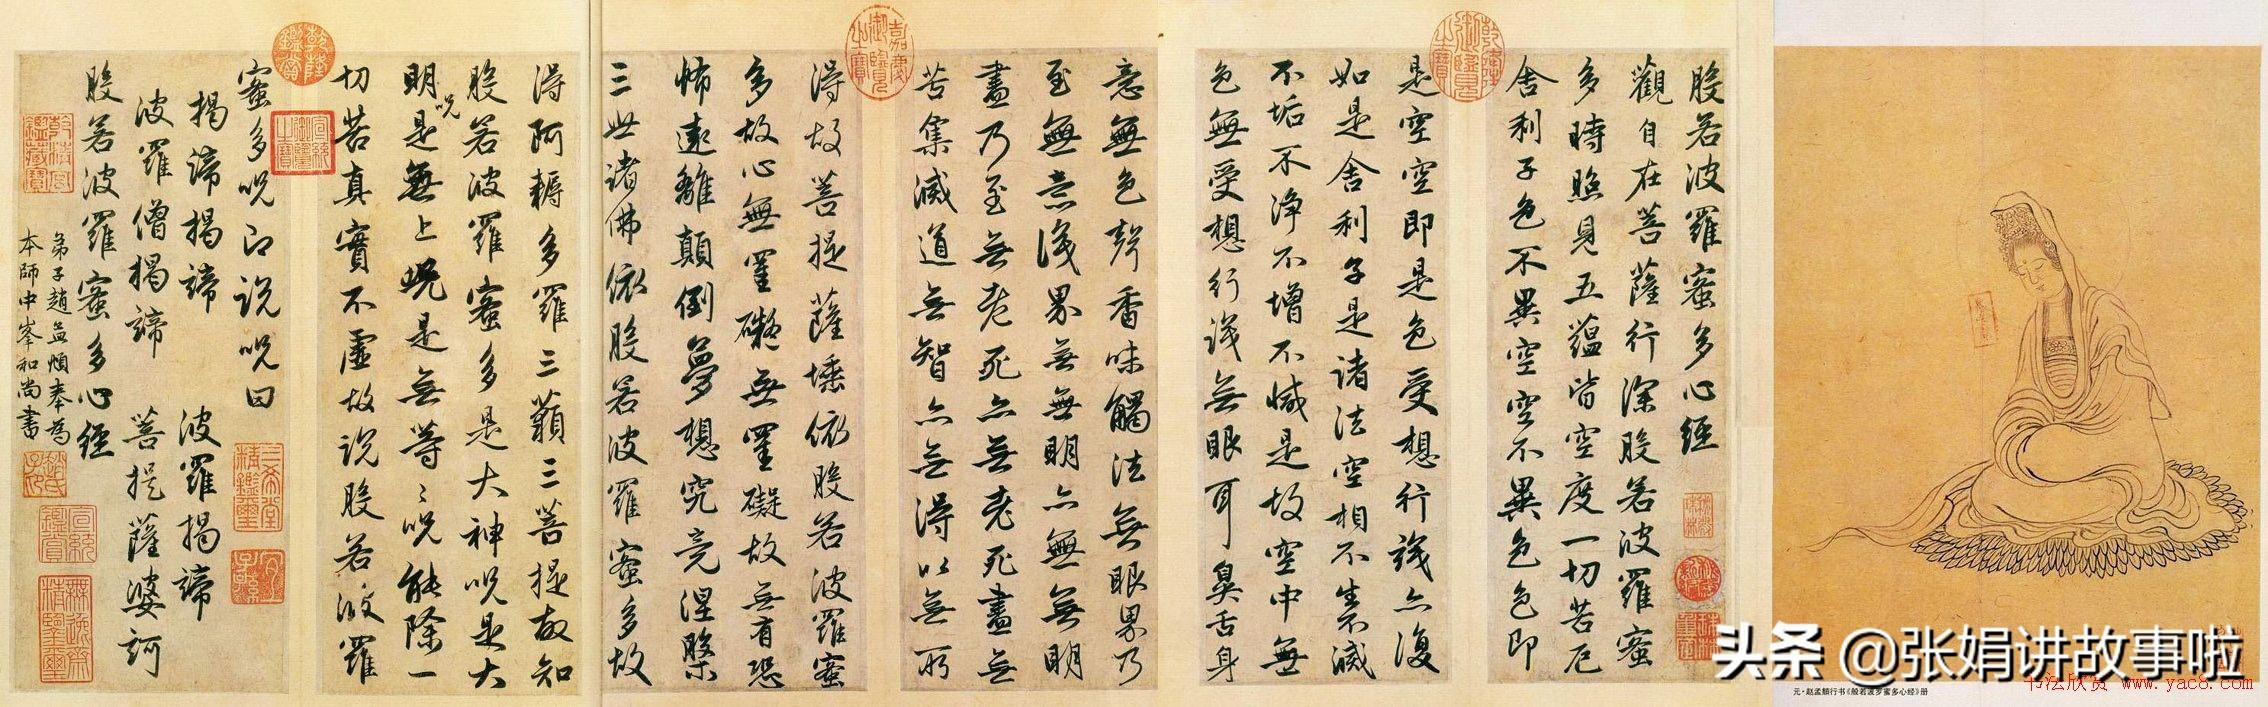 般若波羅蜜多心經
觀自在菩薩行深般若波羅蜜
多時照見五蘊皆空度一切苦厄
舍利子色不異空空不異色色即
是空空即是色受想行識亦復
如是舍利子是諸法空相不生不滅
不垢不淨不增不減是故空中無
色無受想行識無眼耳鼻舌身
意無色聲香味觸法無眼界乃
至無意識界無無明亦無無明
盡乃至無老死亦無老死盡無
苦集滅道無智亦無得以無所
得故菩提薩埵依般若波羅蜜
多故心無罣礙無罣礙故無有恐
怖遠離顛倒夢想究竟涅槃
三世諸佛依般若波羅蜜多故
得阿耨多羅三藐三菩提故知
般若波羅蜜多是大神呪是大
明呪是無上呪是無等等呪能除一
切苦真實不虛故說般若波羅
蜜多呪即說呪曰
揭諦揭諦 波羅揭諦
波羅僧揭諦 菩提薩婆訶
般若波羅蜜多心經
弟子趙孟頫奉為
本師中峯和尚書
乾隆鑑賞
宣統御覽之寶
嘉慶御覽之寶
乾隆御覽之寶
三希堂精鑑璽
宜子孫
乾清宮鑑藏寶
趙氏子昂
宣統鑑賞
無逸齋精鑒璽
元·赵孟頫行书《般若波罗蜜多心经》册
头条 @张娟讲故事啦
书法欣赏 www.yac8.com